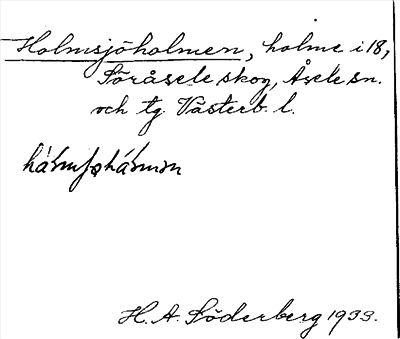 Holmsjöholmen, holme i 18,
Söråsele skog, Åsele sn.
och tg. Västerb. l.
H. A. Söderberg 1933.